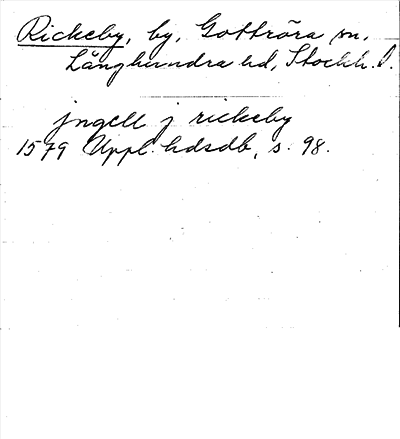 Rickeby, by, Gottröra sn,
Långhundra hd, Stockh. l.
jngell j rickeby
1579 Uppl. hdsdb, s. 98.